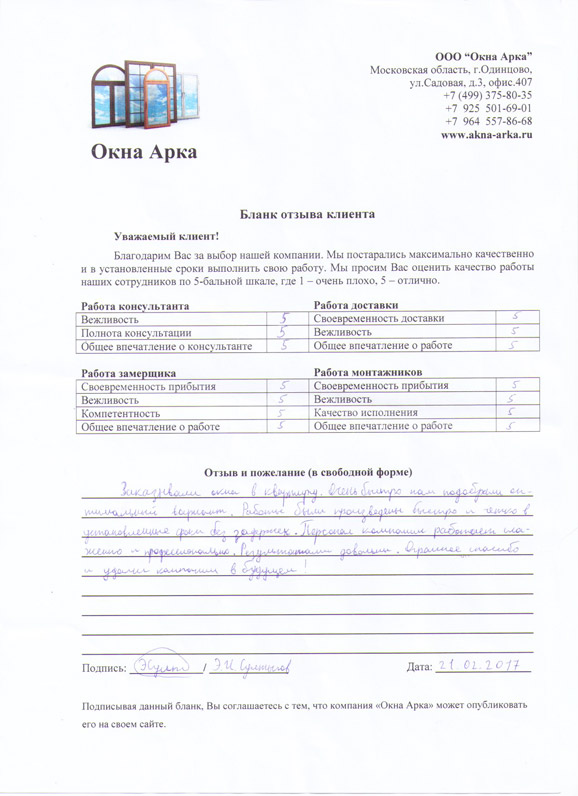 Окна Арка
ООО “Окна Арка”
Московская область, г.Одинцово,
ул.Садовая, д.3, офис.407
+7 (499) 375-80-35
+7 925 501-69-01
+7 964 557-86-68
www.akna-arka.ru
Бланк отзыва клиента
Уважаемый клиент!
Благодарим Вас за выбор нашей компании. Мы постарались максимально качественно
и в установленные сроки выполнить свою работу. Мы просим Вас оценить качество работы
наших сотрудников по 5-бальной шкале, где 1 – очень плохо, 5 – отлично.
Работа консультанта
Вежливость 5
Полнота консультации 5
Общее впечатление о консультанте 5
Работа доставки
Своевременность доставки 5
Вежливость 5
Общее впечатление о работе 5
Работа замерщика
Своевременность прибытия 5
Вежливость 5
Компетентность 5
Общее впечатление о работе 5
Работа монтажников
Своевременность прибытия 5
Вежливость 5
Качество исполнения 5
Общее впечатление о работе 5
Отзыв и пожелание (в свободной форме)
Заказывали окна в квартиру. Очень быстро нам подобрали оп-
тимальный вариант. Работы были произведены быстро и четко в
установленные сроки без задержек. Персонал компании работает сла-
женно и профессионально. Результатами довольны. Огромное спасибо
и удачи компании в будущем!
Подпись: / Э.И.
Дата: 21.02.2017
Подписывая данный бланк, Вы соглашаетесь с тем, что компания «Окна Арка» может опубликовать
его на своем сайте.